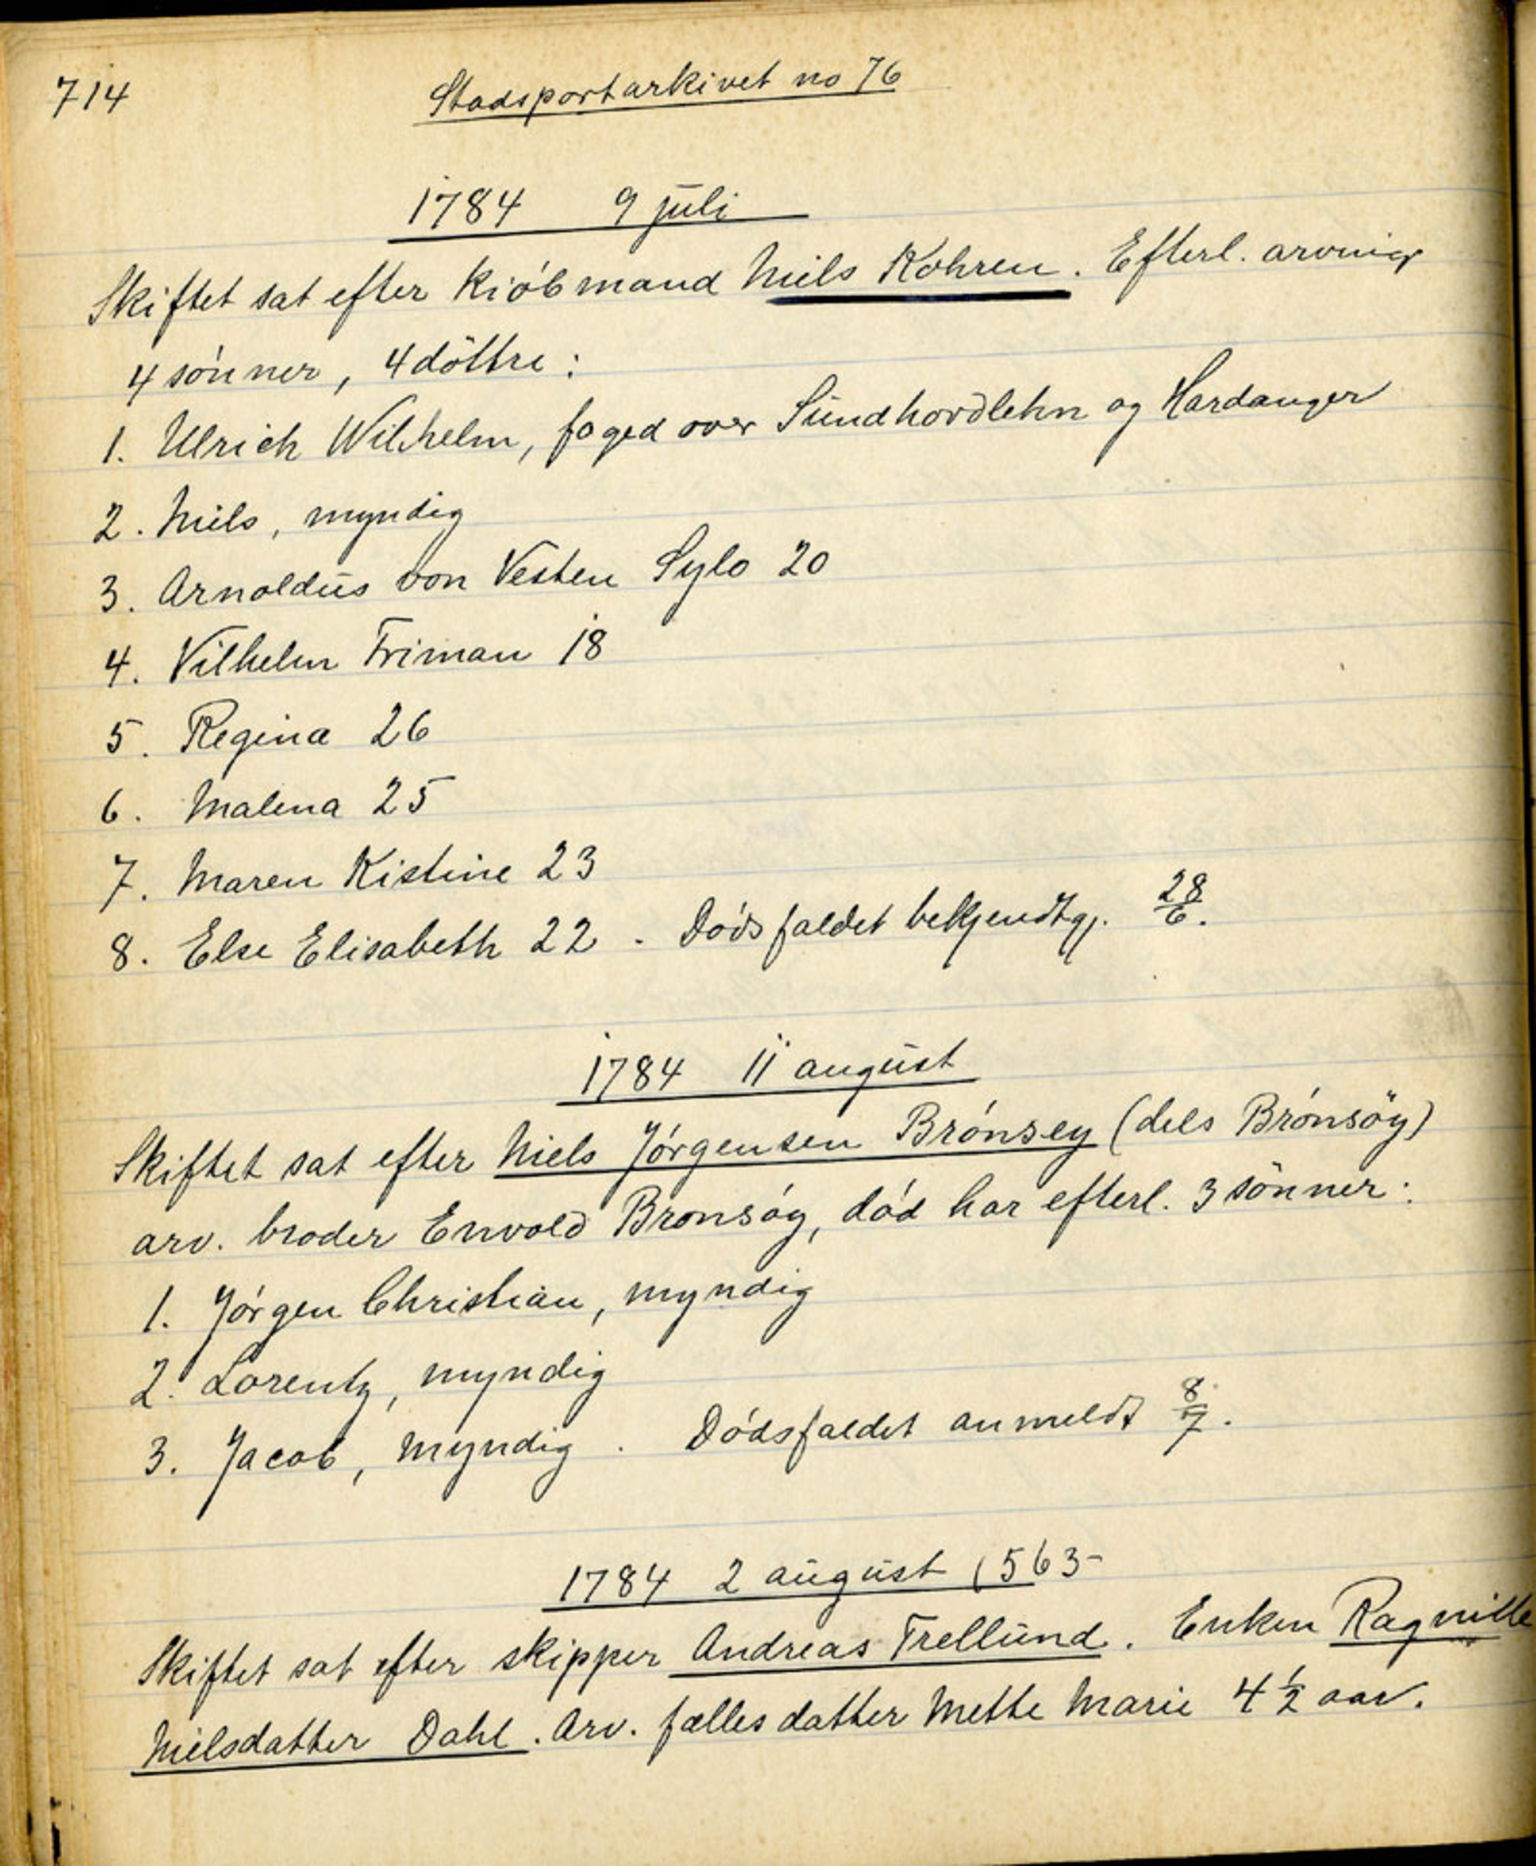 714
Stadsportarkivet no 76
1784 9 juli
Skiftet sat efter kiöbmand Niels Kohren. Efterl. arvinger
4 sönner, 4 döttre:
1. Ulrich Wilhelm, foged over Sundhordlehn og Hardanger
2. Niels, myndig
3. Arnoldus von Vesten Sylo 20
4. Vilhelm Friman 18
5. Regina 26
6. Malena 25
7. Maren Kistine 23
8. Else Elisabeth 22 . Dödsfaldet bekjendtgj. 28/6.
1784 11 august
Skiftet sat efter Niels Jörgensen Brönsey (dels Brönsöy)
arv. broder Envold Bronsöy, död har efterl. 3 sönner:
1. Jörgen Christian, myndig
2. Lorentz, myndig
3. Jacob, myndig . Dödsfaldet anmeldt 8/7.
1784 2 august (563-
Skiftet sat efter skipper Andreas Trellund. Enken Ragnille
Nielsdatter Dahl. Arv. fælles datter Mette Marie 4 1/2 aar.